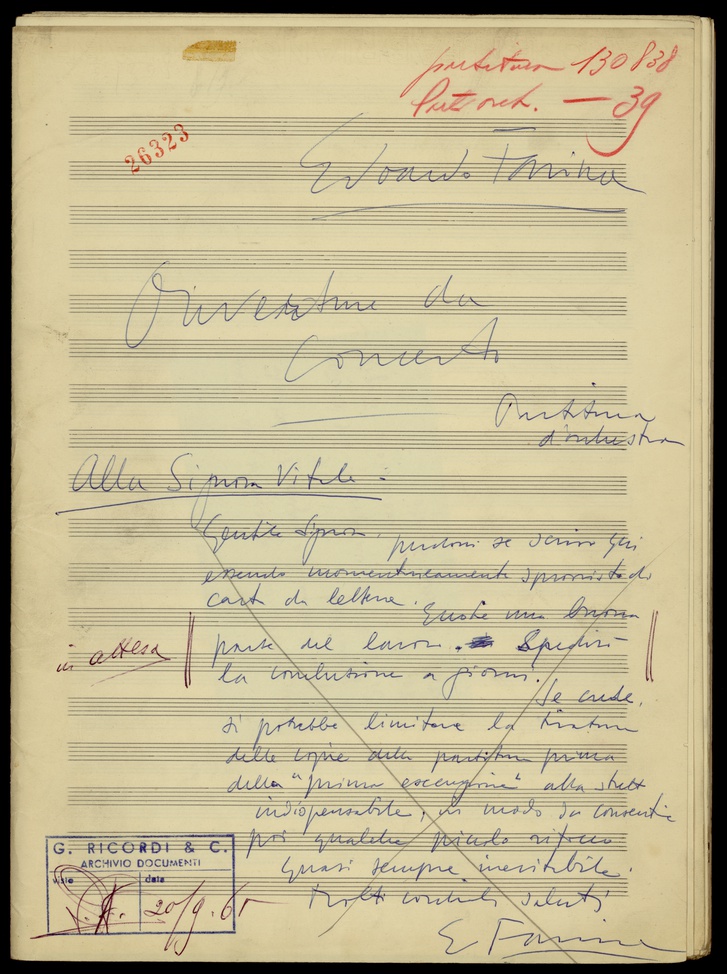 partitura 130838
Part orch. — 39
26323
Edoardo Farina
Ouverture da
Concerto
Partitura
d'orchestra
Alla Signora Vitale:
Gentile Signora, perdoni se scrivo qui
essendo momentaneamente sprovvisto di
carta da lettere. Questa una buona
parte del lavoro. Spedirò
in attesa
la conclusione a giorni.
Se crede,
si potrebbe limitare la tiratura
delle copie della partitura prima
della "prima esecuzione" allo stretto
indispensabile, in modo da consentire
poi qualche piccolo ritocco
quasi sempre inevitabile.
Molti cordiali saluti
E. Farina
G. RICORDI & C.
ARCHIVIO DOCUMENTI
visto data
20/9.65